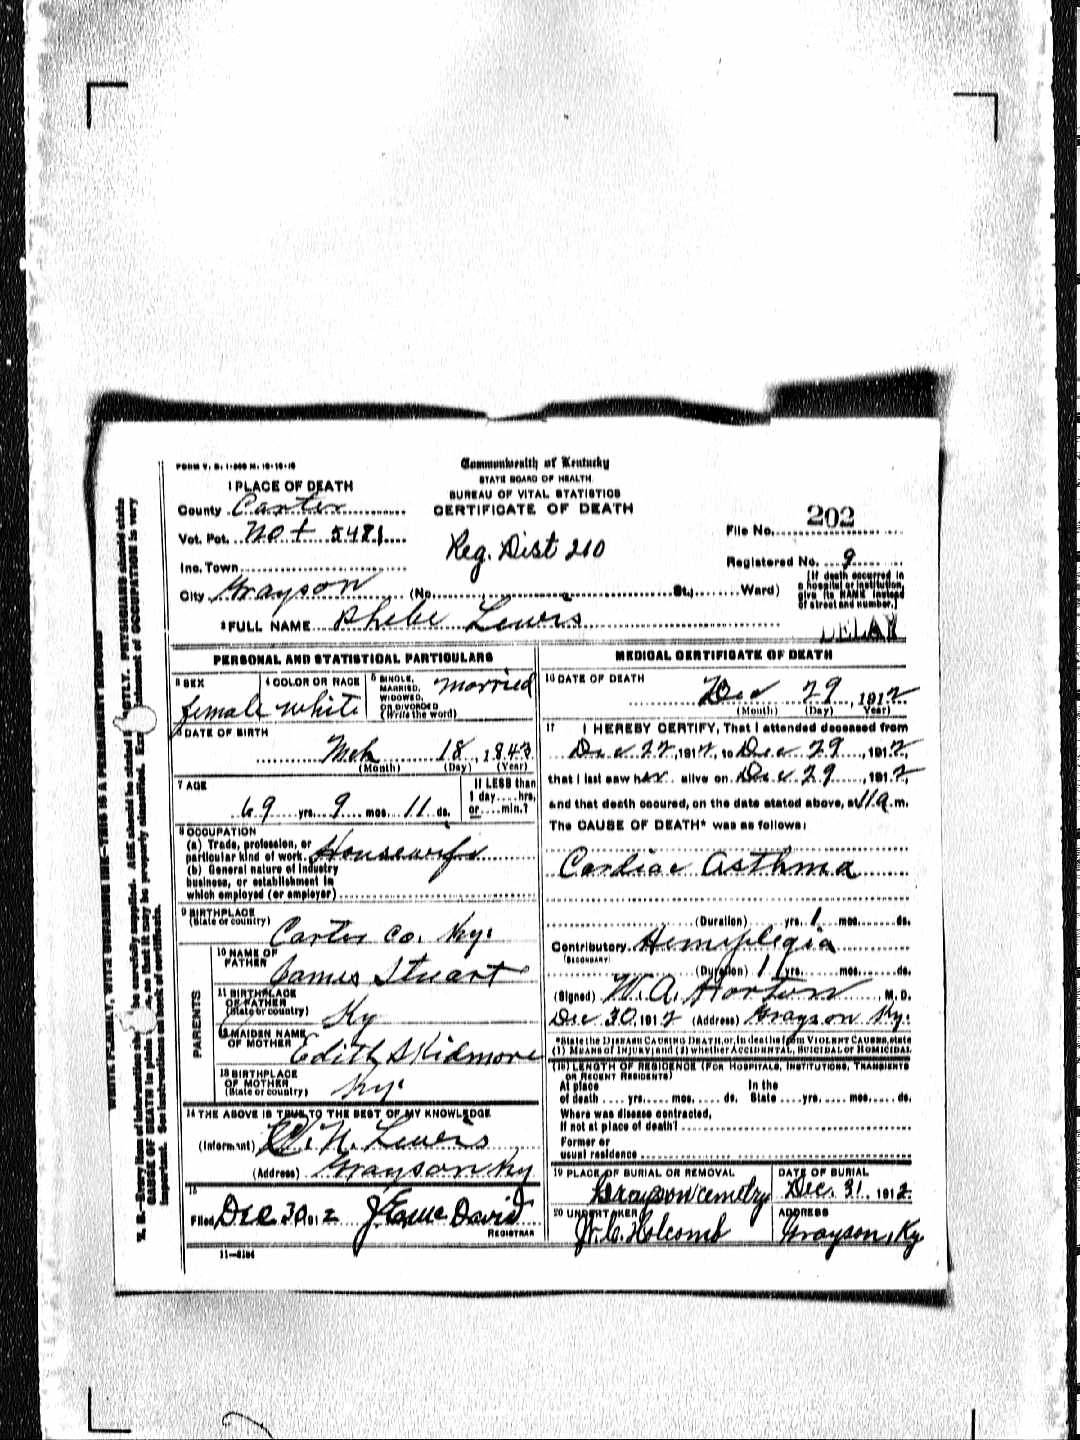 FORM V. S. 1-
Commonwealth of Kentucky
STATE BOARD OF HEALTH
BUREAU OF VITAL STATISTICS
CERTIFICATE OF DEATH
1 PLACE OF DEATH
County Carter
Vot. Pct. No + 5481
Inc. Town
City Grayson (No. St.; Ward)
Reg. Dist 210
File No. 202
Registered No. 9
(If death occurred in
a hospital or institution,
give its NAME instead
of street and number.)
2 FULL NAME Phebe Lewis
DELAY
PERSONAL AND STATISTICAL PARTICULARS
3 SEX
female
4 COLOR OR RACE
white
5 SINGLE,
MARRIED,
WIDOWED,
OR DIVORCED
(Write the word)
married
6 DATE OF BIRTH
Mch 18, 1843
(Month) (Day) (Year)
7 AGE
69 yrs. 9 mos. 11 ds.
If LESS than
1 day....hrs.
or....min.?
8 OCCUPATION
(a) Trade, profession, or
particular kind of work Housewife
(b) General nature of industry
business, or establishment in
which employed (or employer)
9 BIRTHPLACE
(State or country)
Carter co. Ky.
PARENTS
10 NAME OF
FATHER
James Stuart
11 BIRTHPLACE
OF FATHER
(State or country)
Ky
12 MAIDEN NAME
OF MOTHER
Edith Skidmore
13 BIRTHPLACE
OF MOTHER
(State or country)
Ky.
14 THE ABOVE IS TRUE TO THE BEST OF MY KNOWLEDGE
(Informant) N. Lewis
(Address) Grayson Ky
15
Filed Dec 30 1912 David
REGISTRAR
11-
MEDICAL CERTIFICATE OF DEATH
16 DATE OF DEATH
Dec 29, 1912
(Month) (Day) (Year)
17 I HEREBY CERTIFY, That I attended deceased from
Dec 22, 1912, to Dec 29, 1912,
that I last saw her alive on Dec 29, 1912,
and that death occured, on the date stated above, at 11 a.m.
The CAUSE OF DEATH* was as follows:
Cardiac Asthma
(Duration) yrs. 1 mos. ds.
Contributory Hemiplegia
(SECONDARY)
(Duration) 11 yrs. mos. ds.
(Signed) W. A. Horton, M. D.
Dec 30, 1912 (Address) Grayson Ky.
*State the DISEASE CAUSING DEATH, or, in deaths from VIOLENT CAUSES, state
(1) MEANS OF INJURY; and (2) whether ACCIDENTAL, SUICIDAL OR HOMICIDAL
(18) LENGTH OF RESIDENCE (FOR HOSPITALS, INSTITUTIONS, TRANSIENTS
OR RECENT RESIDENTS)
At place In the
of death yrs. mos. ds. State yrs. mos. ds.
Where was disease contracted,
if not at place of death?
Former or
usual residence
19 PLACE OF BURIAL OR REMOVAL
Grayson cemetry
DATE OF BURIAL
Dec. 31, 1912
20 UNDERTAKER
Holcomb
ADDRESS
Grayson, Ky.
WRITE PLAINLY, WITH UNFADING INK—THIS IS A PERMANENT RECORD
N. B.—Every item of information should be carefully supplied. AGE should be stated EXACTLY. PHYSICIANS should state
CAUSE OF DEATH in plain so that it may be properly classified. statement of OCCUPATION is very
important. See instructions on back of certificate.